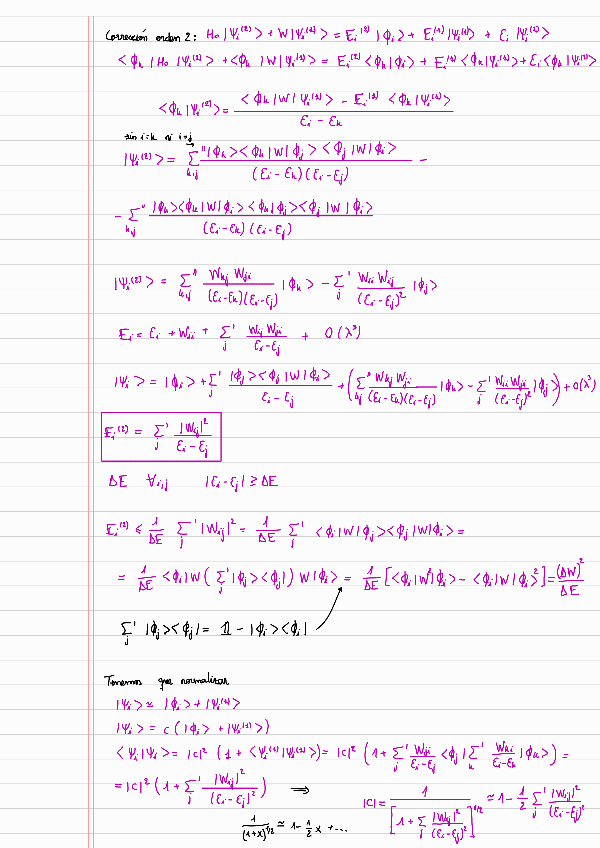 Corrección orden 2: H₀ |Ψᵢ⁽²⁾> + W |Ψᵢ⁽¹⁾> = Eᵢ⁽²⁾ |ϕᵢ> + Eᵢ⁽¹⁾ |Ψᵢ⁽¹⁾> + εᵢ |Ψᵢ⁽²⁾>
<ϕₖ | H₀ |Ψᵢ⁽²⁾> + <ϕₖ | W |Ψᵢ⁽¹⁾> = Eᵢ⁽²⁾ <ϕₖ|ϕᵢ> + Eᵢ⁽¹⁾ <ϕₖ|Ψᵢ⁽¹⁾> + εᵢ <ϕₖ|Ψᵢ⁽²⁾>
<ϕₖ|Ψᵢ⁽²⁾> = (<ϕₖ|W|Ψᵢ⁽¹⁾> - Eᵢ⁽¹⁾ <ϕₖ|Ψᵢ⁽¹⁾>) / (εᵢ - εₖ)
sin i=k ni i=j
|Ψᵢ⁽²⁾> = Σ_{k,j}'' |ϕₖ><ϕₖ|W|ϕⱼ><ϕⱼ|W|ϕᵢ> / ((εᵢ - εₖ)(εᵢ - εⱼ)) -
- Σ_{k,j}'' |ϕₖ><ϕₖ|W|ϕᵢ><ϕₖ|ϕⱼ><ϕⱼ|W|ϕᵢ> / ((εᵢ - εₖ)(εᵢ - εⱼ))
|Ψᵢ⁽²⁾> = Σ_{k,j}'' Wₖⱼ Wⱼᵢ / ((εᵢ-εₖ)(εᵢ-εⱼ)) |ϕₖ> - Σⱼ' Wᵢᵢ Wᵢⱼ / (εᵢ-εⱼ)² |ϕⱼ>
Eᵢ = εᵢ + Wᵢᵢ + Σⱼ' Wᵢⱼ Wⱼᵢ / (εᵢ-εⱼ) + O(λ³)
|Ψᵢ> = |ϕᵢ> + Σⱼ' |ϕⱼ><ϕⱼ|W|ϕᵢ> / (εᵢ - εⱼ) + (Σ_{k,j}'' Wₖⱼ Wⱼᵢ / ((εᵢ-εₖ)(εᵢ-εⱼ)) |ϕₖ> - Σⱼ' Wᵢᵢ Wⱼᵢ / (εᵢ-εⱼ)² |ϕⱼ>) + O(λ³)
Eᵢ⁽²⁾ = Σⱼ' |Wᵢⱼ|² / (εᵢ - εⱼ)
ΔE ∀i,j |εᵢ - εⱼ| ≥ ΔE
Eᵢ⁽²⁾ ≤ 1/ΔE Σⱼ' |Wᵢⱼ|² = 1/ΔE Σⱼ' <ϕᵢ|W|ϕⱼ><ϕⱼ|W|ϕᵢ> =
= 1/ΔE <ϕᵢ|W (Σⱼ' |ϕⱼ><ϕⱼ|) W|ϕᵢ> = 1/ΔE [<ϕᵢ|W²|ϕᵢ> - <ϕᵢ|W|ϕᵢ>²] = (ΔW)²/ΔE
Σⱼ' |ϕⱼ><ϕⱼ| = 𝟙 - |ϕᵢ><ϕᵢ|
Tenemos que normalizar
|Ψᵢ> ≃ |ϕᵢ> + |Ψᵢ⁽¹⁾>
|Ψᵢ> = c (|ϕᵢ> + |Ψᵢ⁽¹⁾>)
<Ψᵢ|Ψᵢ> = |c|² (1 + <Ψᵢ⁽¹⁾|Ψᵢ⁽¹⁾>) = |c|² (1 + Σⱼ' Wⱼᵢ/(εᵢ-εⱼ) <ϕⱼ| Σₖ' Wₖᵢ/(εᵢ-εₖ) |ϕₖ>) =
= |c|² (1 + Σⱼ' |Wᵢⱼ|² / (εᵢ-εⱼ)²) ⟹ |c| = 1 / [1 + Σⱼ |Wᵢⱼ|² / (εᵢ-εⱼ)²]^{1/2} ≃ 1 - 1/2 Σⱼ' |Wᵢⱼ|² / (εᵢ-εⱼ)²
1/(1+x)^{1/2} ≃ 1 - 1/2 x + ...